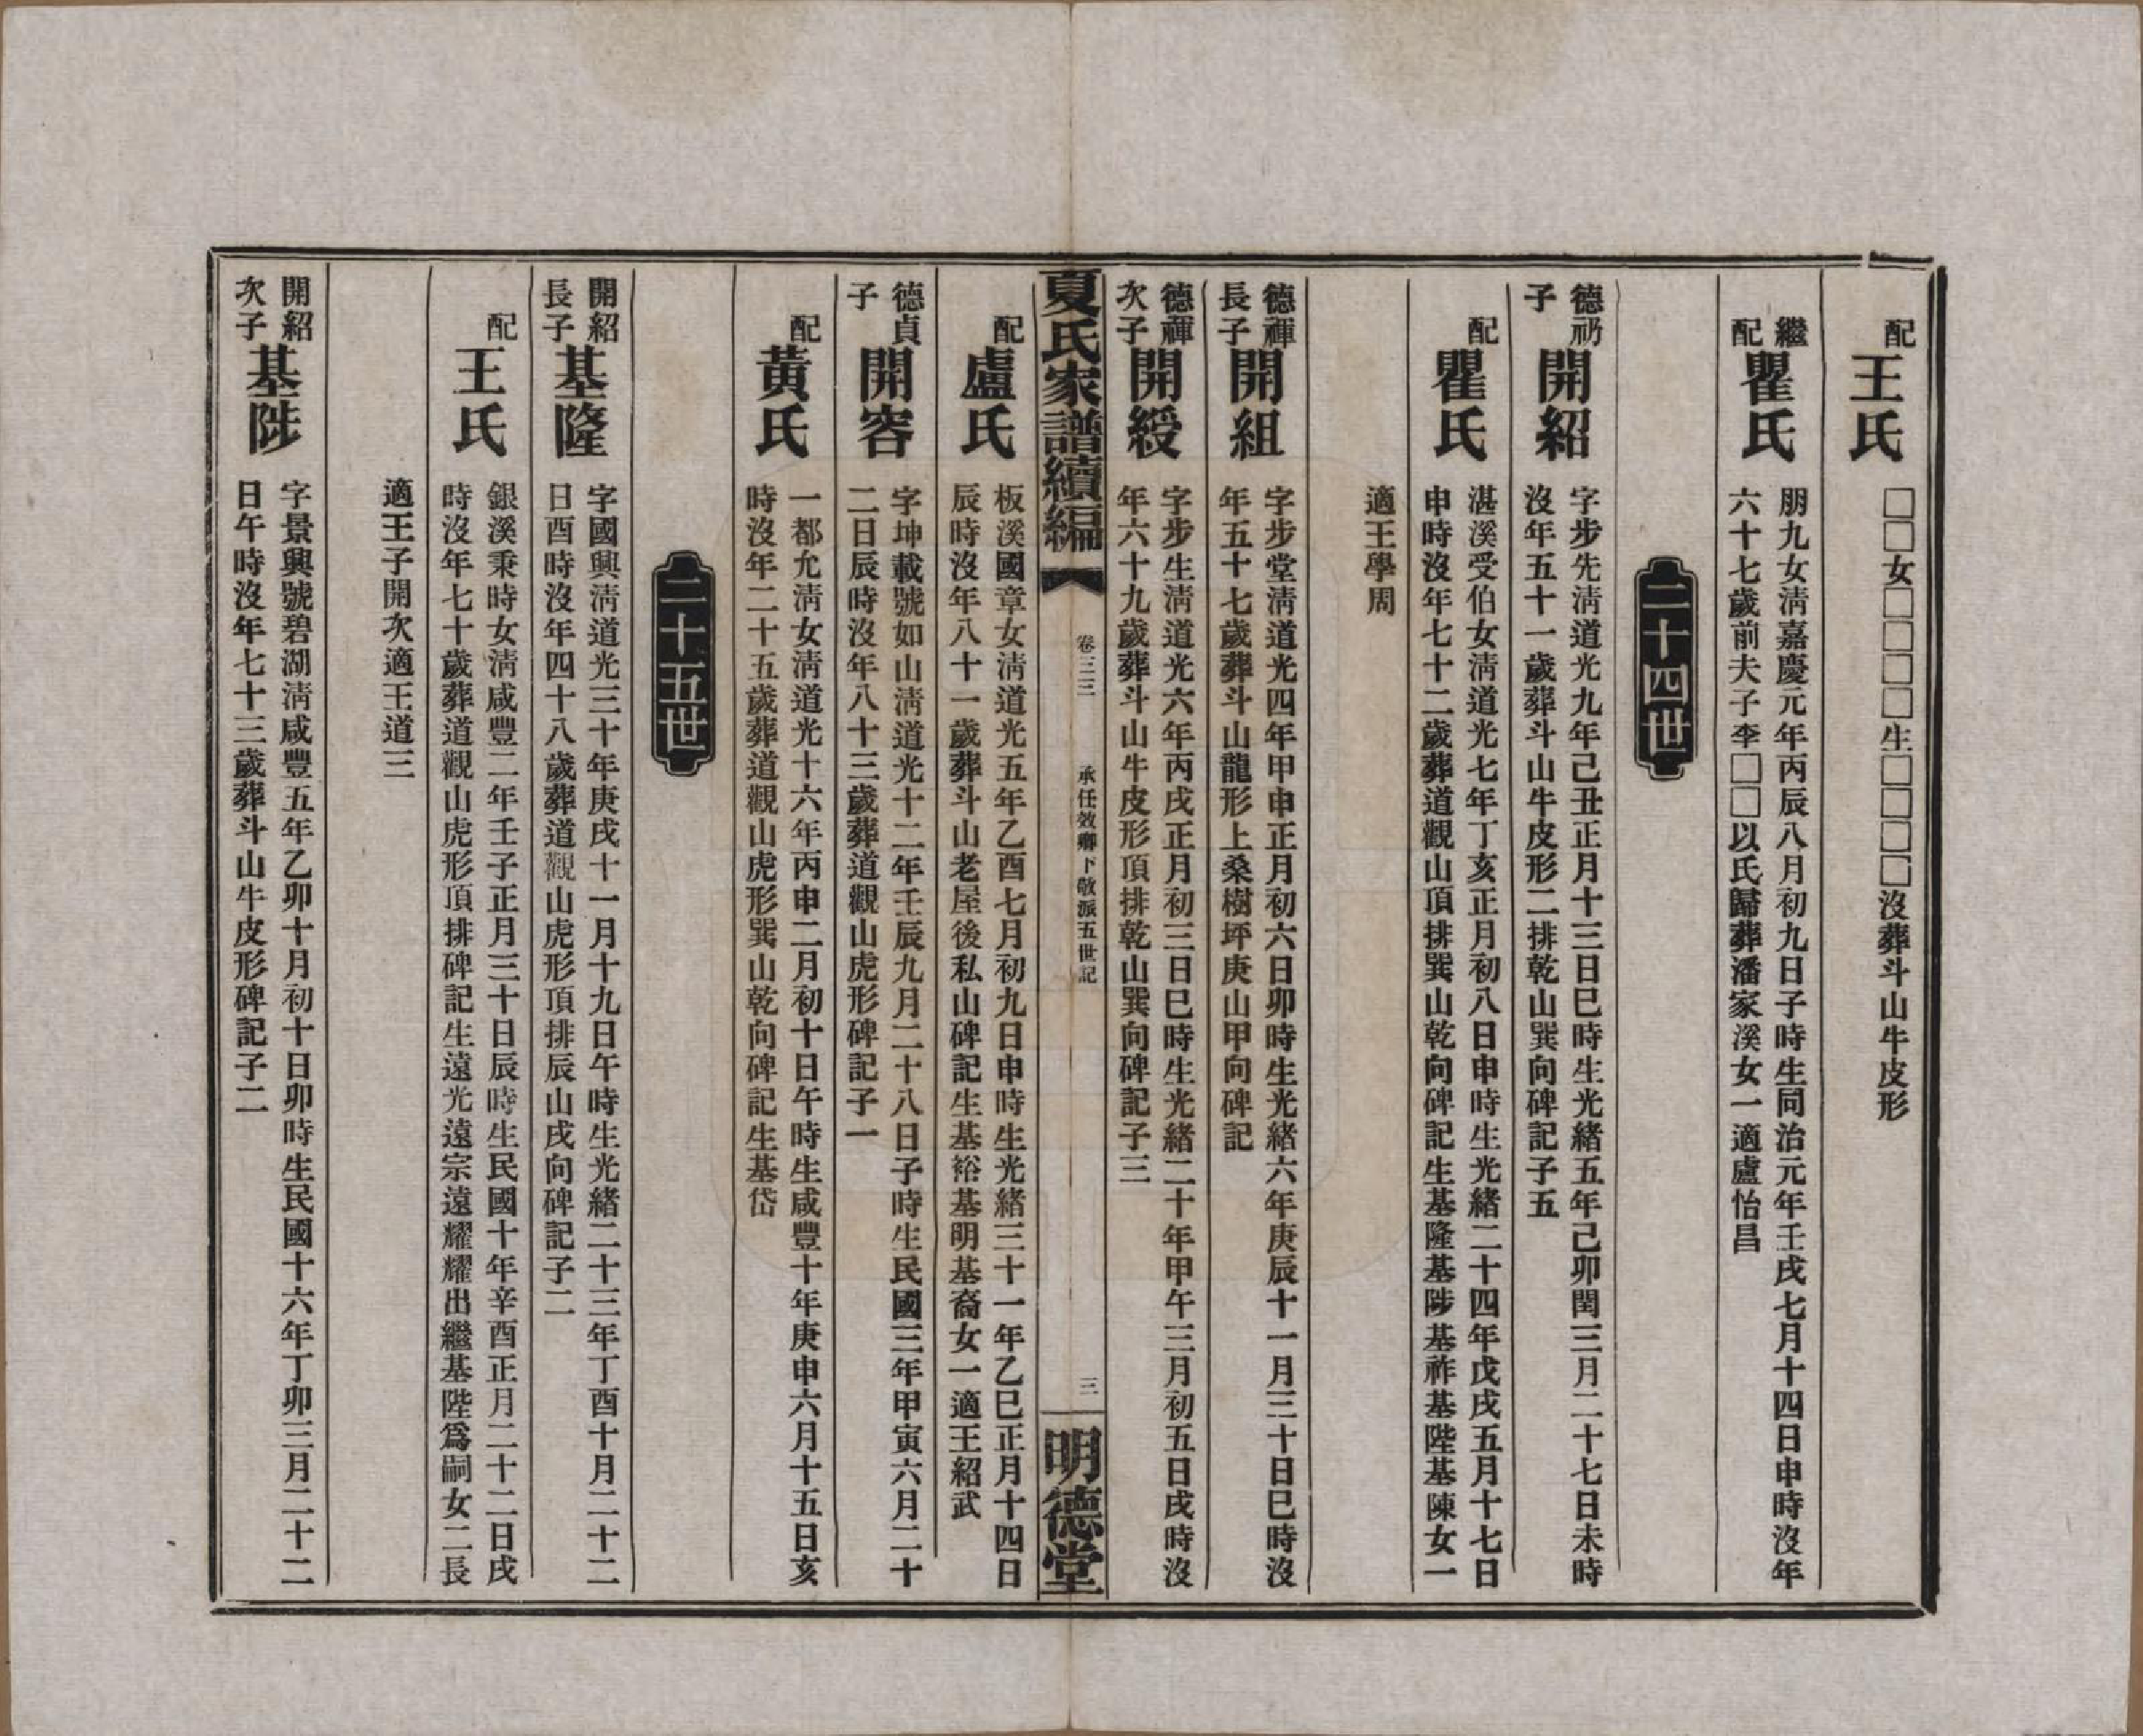 配
王氏
□□女□□□□生□□□□沒葬斗山牛皮形
繼
配
瞿氏
朋九女淸嘉慶元年丙辰八月初九日子時生同治元年壬戌七月十四日申時沒年
六十七歲前夫子李□□以氏歸葬潘家溪女一適盧怡昌
二十四世
德礽
子
開紹
字步先淸道光九年己丑正月十三日巳時生光緒五年己卯閏三月二十七日未時
沒年五十一歲葬斗山牛皮形二排乾山巽向碑記子五
配
瞿氏
湛溪受伯女淸道光七年丁亥正月初八日申時生光緒二十四年戊戌五月十七日
申時沒年七十二歲葬道觀山頂排巽山乾向碑記生基隆基陟基祚基陛基陳女一
適王學周
德禈
長子
開組
字步堂淸道光四年甲申正月初六日卯時生光緒六年庚辰十一月三十日巳時沒
年五十七歲葬斗山龍形上桑樹坪庚山甲向碑記
德禈
次子
開綬
字步生淸道光六年丙戌正月初三日巳時生光緒二十年甲午三月初五日戌時沒
年六十九歲葬斗山牛皮形頂排乾山巽向碑記子三
夏氏家譜續編
卷三三
承任效卿下敬派五世記
三
明德堂
配
盧氏
板溪國章女淸道光五年乙酉七月初九日申時生光緒三十一年乙巳正月十四日
辰時沒年八十一歲葬斗山老屋後私山碑記生基裕基明基裔女一適王紹武
德貞
子
開容
字坤載號如山淸道光十二年壬辰九月二十八日子時生民國三年甲寅六月二十
二日辰時沒年八十三歲葬道觀山虎形碑記子一
配
黃氏
一都允淸女淸道光十六年丙申二月初十日午時生咸豐十年庚申六月十五日亥
時沒年二十五歲葬道觀山虎形巽山乾向碑記生基岱
二十五世
開紹
長子
基隆
字國興淸道光三十年庚戌十一月十九日午時生光緒二十三年丁酉十月二十二
日酉時沒年四十八歲葬道觀山虎形頂排辰山戌向碑記子二
配
王氏
銀溪秉時女淸咸豐二年壬子正月三十日辰時生民國十年辛酉正月二十二日戌
時沒年七十歲葬道觀山虎形頂排碑記生遠光遠宗遠耀耀出繼基陛爲嗣女二長
適王子開次適王道三
開紹
次子
基陟
字景興號碧湖淸咸豐五年乙卯十月初十日卯時生民國十六年丁卯三月二十二
日午時沒年七十三歲葬斗山牛皮形碑記子二